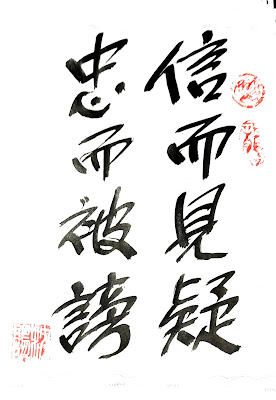 信而見疑
忠而被謗